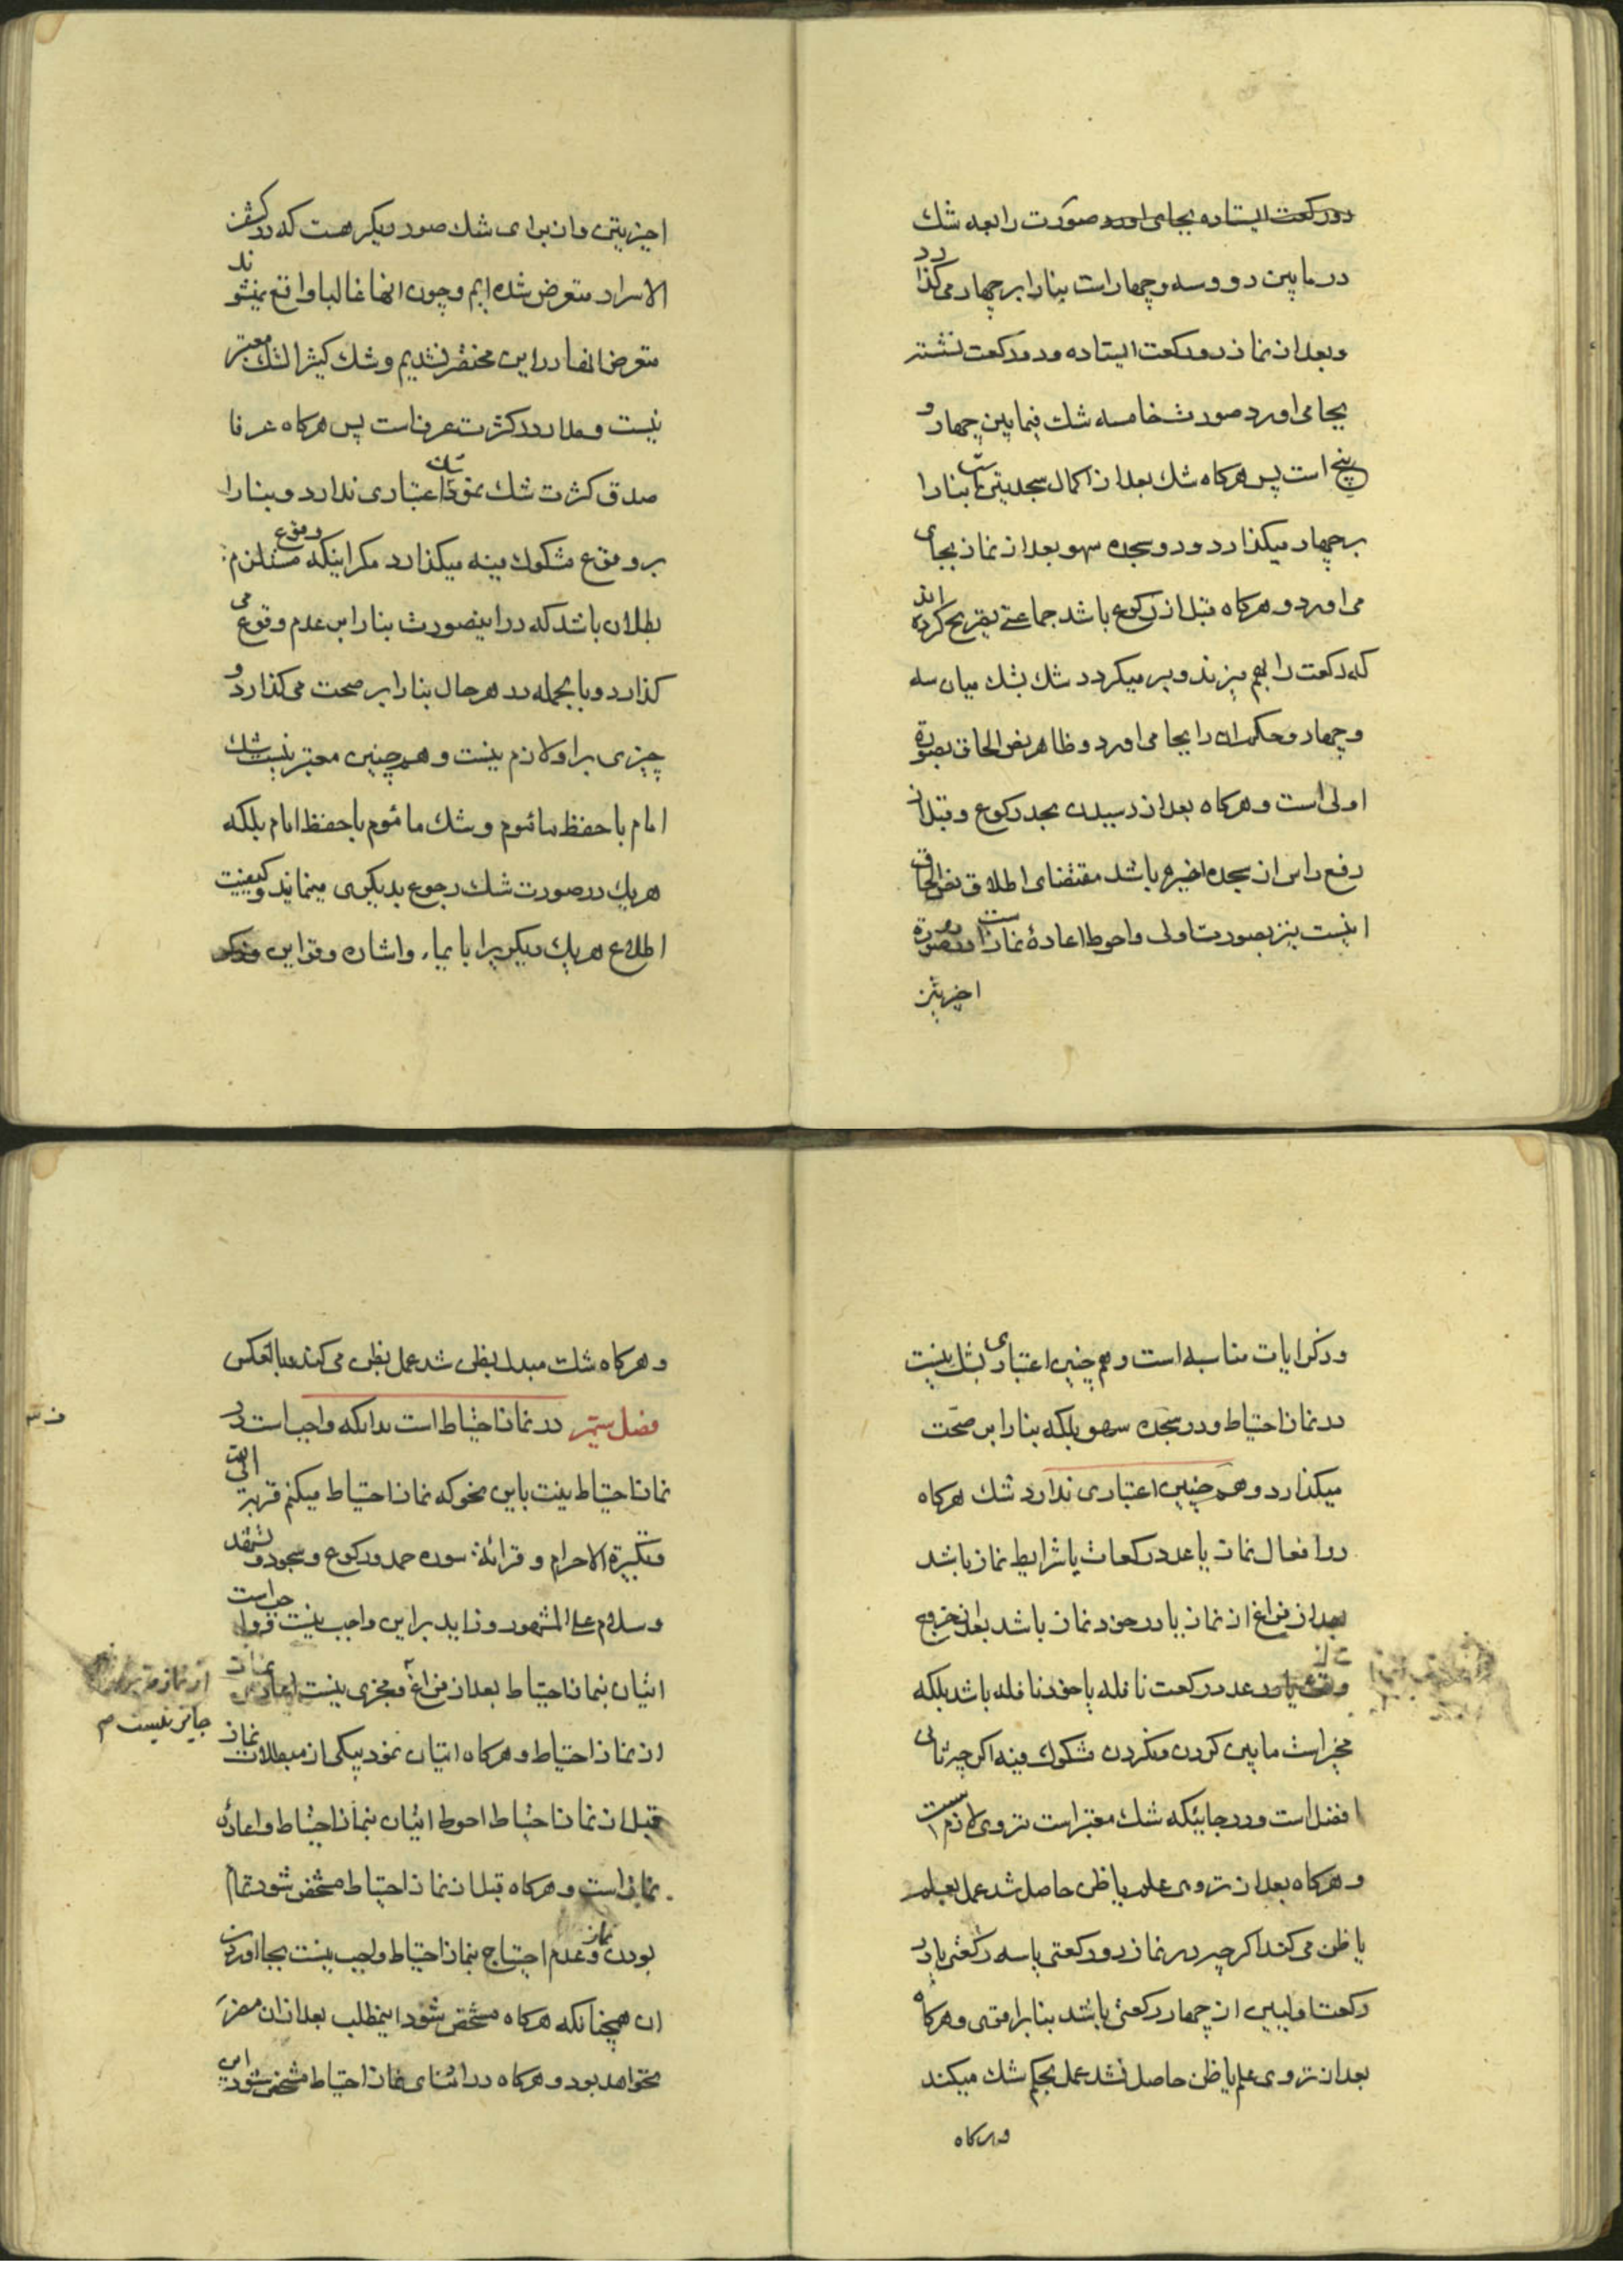 دو رکعت ایستاده بجای اورد صورت رابعه شك
در ما بین دو و سه و چهار است بنا را بر چهار می کذارد
و بعد از نماز دو رکعت ایستاده و دو رکعت نشسته
بجا می اورد صورت خامسه شك فیما بین چهار و
پنج است پس هرکاه شك بعد از اکمال سجدتین است بنا را
بر چهار میکذارد و دو سجده سهو بعد از نماز بجای
می اورد و هرکاه قبل از رکوع باشد جماعتی تصریح کرده اند
که رکعت را بهم میزند و بر میکردد شك بشك میان سه
و چهار و حکم ان را بجا می اورد و ظاهر نص الحاق بصورة
اولی است و هرکاه بعد از رسیدن بحد رکوع و قبل از
رفع راس از سجده اخیره باشد مقتضای اطلاق نص الحاق
اینست نیز بصورت اولی و احوط اعادهٔ نماز است در صورة
اخیرتین
اخیرتین و از برای شك صور دیکر هست که در کشف
الاسرار متعرض شده ایم و چون انها غالبا واقع نمیشوند
متعرض انها در این مختصر نشدیم و شك کثیر الشك معتبر
نیست و مدار در کثرت عرفست پس هرکاه عرفا
صدق کثرت شك نمود اعتباری ندارد و بنا را
بر وقوع مشکوك فیه میکذارد مکر اینکه وقوع مستلزم
بطلان باشد که در اینصورت بنا را بر عدم وقوع می
کذارد و بالجمله در هر حال بنا را بر صحت می کذارد و
چیزی بر او لازم نیست و همچنین معتبر نیست شك
امام با حفظ مائموم و شك مائموم با حفظ امام بلکه
هر یك در صورت شك رجوع بدیکری مینماید و کیفیت
اطلاع هر یك دیکریرا بایماء و اشاره و قراین و ذکر
و ذکر ایات مناسبه است و هم چنین اعتباری بشك نیست
در نماز احتیاط و در سجده سهو بلکه بنا را بر صحت
میکذارد و هم چنین اعتباری ندارد شك هرکاه
در افعال نماز یا عدد رکعات یا شرایط نماز باشد
بعد از فراغ از نماز یا در خود نماز باشد بعد از خروج
وقت یا در عدد رکعت نافله یا خود نافله باشد بلکه
مخیر است ما بین کردن و نکردن مشکوك فیه اکر چه ثانی
افضل است و در جائیکه شك معتبر است تروی لازم است
و هرکاه بعد از تروی علم یا ظن حاصل شد عمل بعلم
یا ظن می کند اکر چه در نماز دو رکعتی یا سه رکعتی یا دو
رکعت اولیین از چهار رکعتی باشد بنا بر اقوی و هرکاه
بعد از تروی علم یا ظن حاصل نشد عمل بحکم شك میکند
و هرکاه
و هرکاه شك مبدل بظن شد عمل بظن می کند و بالعکس
فصل سیم در نماز احتیاط است بدانکه واجب است در
نماز احتیاط نیت باین نحو که نماز احتیاط میکنم قربة الی الله
و تکبیرة الاحرام و قرائة سوره حمد و رکوع و سجود و تشهد
و سلام علی المشهور و زاید بر این واجب نیست و واجب است
اتیان بنماز احتیاط بعد از فراغ و مجزی نیست اعاده نماز
از نماز احتیاط و هرکاه اتیان نمود بیکی از مبطلات نماز
قبل از نماز احتیاط احوط اتیان بنماز احتیاط و اعادهٔ
نماز است و هرکاه قبل از نماز احتیاط مشخص شود تمام
بودن نماز و عدم احتیاج بنماز احتیاط واجب نیست بجا اوردن
ان همچنانکه هرکاه مشخص شود اینمطلب بعد از ان مضر
نخواهد بود و هرکاه در اثنای نماز احتیاط مشخص شود این
جایز نیست م